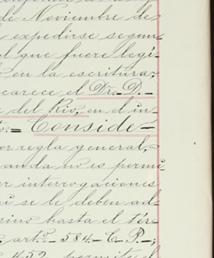 de Noviembre de
expedirse segun
l que fuere legi-
en la escritura;
carece el Dr. D.
del Rio, en el in-
Conside-
or regla general,
anda no es permi-
or interrogaciones
si se le deben ad-
hasta el tér-
art.º 584 C. P.;
452 permite el